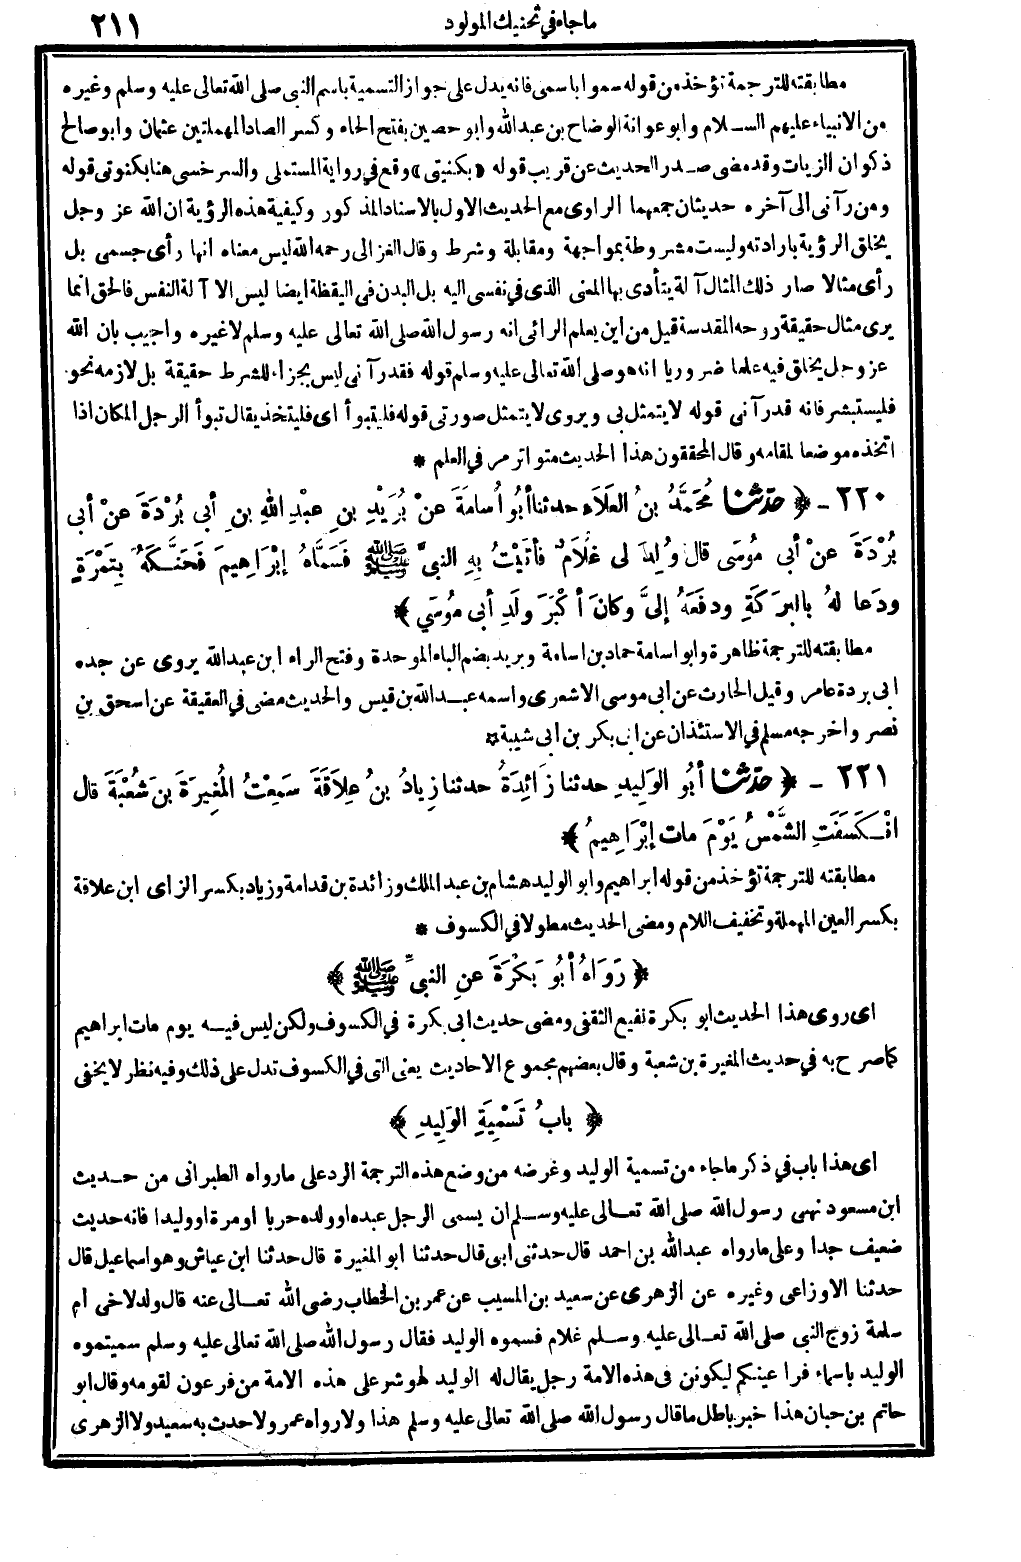 ماجاء في تحنيك المولود ٢١١
مطابقته للترجمة تؤخذ من قوله سموا باسمى فانه يدل على جواز التسمية باسم النبى صلى الله تعالى عليه وسلم وغيره
من الانبياء عليهم السلام وابو عوانة الوضاح بن عبدالله وابو حصين بفتح الحاء وكسر الصاد المهملتين عثمان وابو صالح
ذكوان الزيات وقد مضى صدر الحديث عن قريب قوله «بكنيتى» وقع في رواية المستملى والسرخسى هنا بكنوتى قوله
ومن رآنى الى آخره حديثان جمعهما الراوى مع الحديث الاول بالاسناد المذكور وكيفية هذه الرؤية ان الله عز وجل
يخلق الرؤية بارادته وليست مشروطة بمواجهة ومقابلة وشرط وقال الغزالى رحمه الله ليس معناه انها رأى جسمى بل
رأى مثالا صار ذلك المثال آلة يتأدى بها المعنى الذى في نفسى اليه بل البدن فى اليقظة ايضا ليس الا آلة النفس فالحق انما
يرى مثال حقيقة روحه المقدسة قيل من اين يعلم الرائى انه رسول الله صلى الله تعالى عليه وسلم لاغيره واجيب بان الله
عز وجل يخلق فيه علما ضروريا انه هو صلى الله تعالى عليه وسلم قوله فقد رآنى ليس بجزاء للشرط حقيقة بل لازمه نحو
فليستبشر فانه قد رآنى قوله لا يتمثل بى ويروى لا يتمثل صورتى قوله فليتبوأ اى فليتخذ يقال تبوأ الرجل المكان اذا
اتخذه موضعا لمقامه وقال المحققون هذا الحديث متواتر مر في العلم *
٢٢٠ - ﴿ حدّثنا مُحَمَّدُ بنُ العَلَاء حدثنا أبُو أُسامَةَ عنْ بُرَيْدِ بنِ عبْدِ اللهِ بنِ أبى بُرْدَةَ عنْ أبى
بُرْدَةَ عنْ أبى مُوسَى قال وُلِدَ لى غُلَامٌ فأتَيْتُ بِهِ النبىَّ ﷺ فَسَمَّاهُ إبْرَاهِيمَ فَحَنَّكَهُ بِتَمْرَةٍ
ودَعا لهُ بالبرَكَةِ ودفَعَهُ إلىَّ وكانَ أكْبَرَ ولَدِ أبى مُوسَي ﴾
مطابقته للترجمة ظاهرة وابو اسامة حماد بن اسامة وبريد بضم الباء الموحدة وفتح الراء ابن عبدالله يروى عن جده
ابى بردة عامر وقيل الحارث عن ابى موسى الاشعرى واسمه عبدالله بن قيس والحديث مضى في العقيقة عن اسحق بن
نصر واخرجه مسلم في الاستئذان عن ابى بكر بن ابى شيبة *
٢٢١ - ﴿ حدّثنا أبُو الوَلِيدِ حدثنا زَائِدَةُ حدثنا زِيادُ بنُ عِلَاقَةَ سَمِعْتُ المُغِيرَةَ بنَ شُعْبَةَ قال
انْكَسَفَتِ الشَّمْسُ يَوْمَ مات إبْرَاهِيمُ ﴾
مطابقته للترجمة تؤخذ من قوله ابراهيم وابو الوليد هشام بن عبد الملك وزائدة بن قدامة وزياد بكسر الزاى ابن علاقة
بكسر العين المهملة وتخفيف اللام ومضى الحديث مطولا في الكسوف *
﴿ رَوَاهُ أبُو بَكْرَةَ عنِ النبىِّ ﷺ ﴾
اى روى هذا الحديث ابو بكرة نفيع الثقفى ومضى حديث ابى بكرة في الكسوف ولكن ليس فيه يوم مات ابراهيم
كما صرح به في حديث المغيرة بن شعبة وقال بعضهم مجموع الاحاديث يعنى التى في الكسوف تدل على ذلك وفيه نظر لا يخفى
﴿ بابُ تَسْمِيَةِ الوَلِيدِ ﴾
اى هذا باب في ذكر ماجاء من تسمية الوليد وغرضه من وضع هذه الترجمة الرد على مارواه الطبرانى من حديث
ابن مسعود نهى رسول الله صلى الله تعالى عليه وسلم ان يسمى الرجل عبده او ولده حربا او مرة او وليدا فانه حديث
ضعيف جدا وعلى مارواه عبدالله بن احمد قال حدثنى ابى قال حدثنا ابو المغيرة قال حدثنا ابن عياش وهو اسماعيل قال
حدثنا الاوزاعى وغيره عن الزهرى عن سعيد بن المسيب عن عمر بن الخطاب رضى الله تعالى عنه قال ولد لاخى أم
سلمة زوج النبى صلى الله تعالى عليه وسلم غلام فسموه الوليد فقال رسول الله صلى الله تعالى عليه وسلم سميتموه
الوليد باسماء فراعينكم ليكونن فى هذه الامة رجل يقال له الوليد لهو شر على هذه الامة من فرعون لقومه وقال ابو
حاتم بن حبان هذا خبر باطل ماقال رسول الله صلى الله تعالى عليه وسلم هذا ولا رواه عمر ولا حدث به سعيد ولا الزهرى